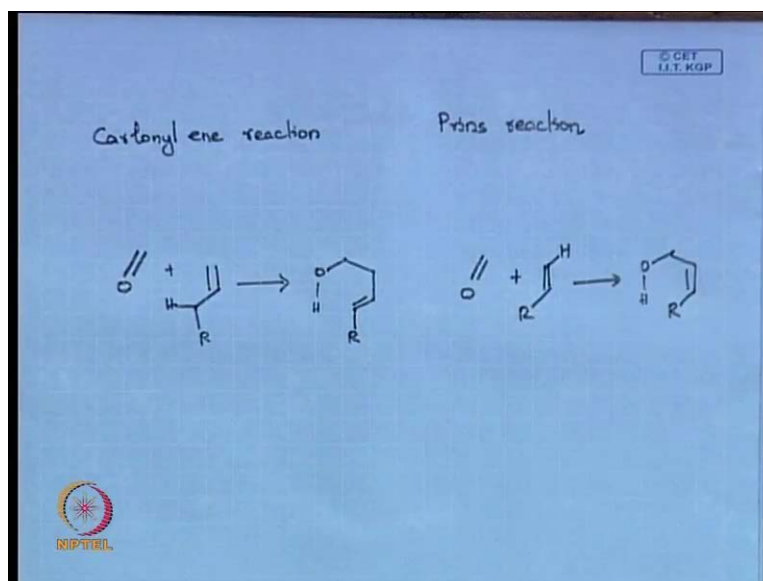 © CET
I.I.T. KGP
Carbonyl ene reaction
Prins reaction
O
+
H
R
O
H
R
O
+
H
R
O
H
R
NPTEL